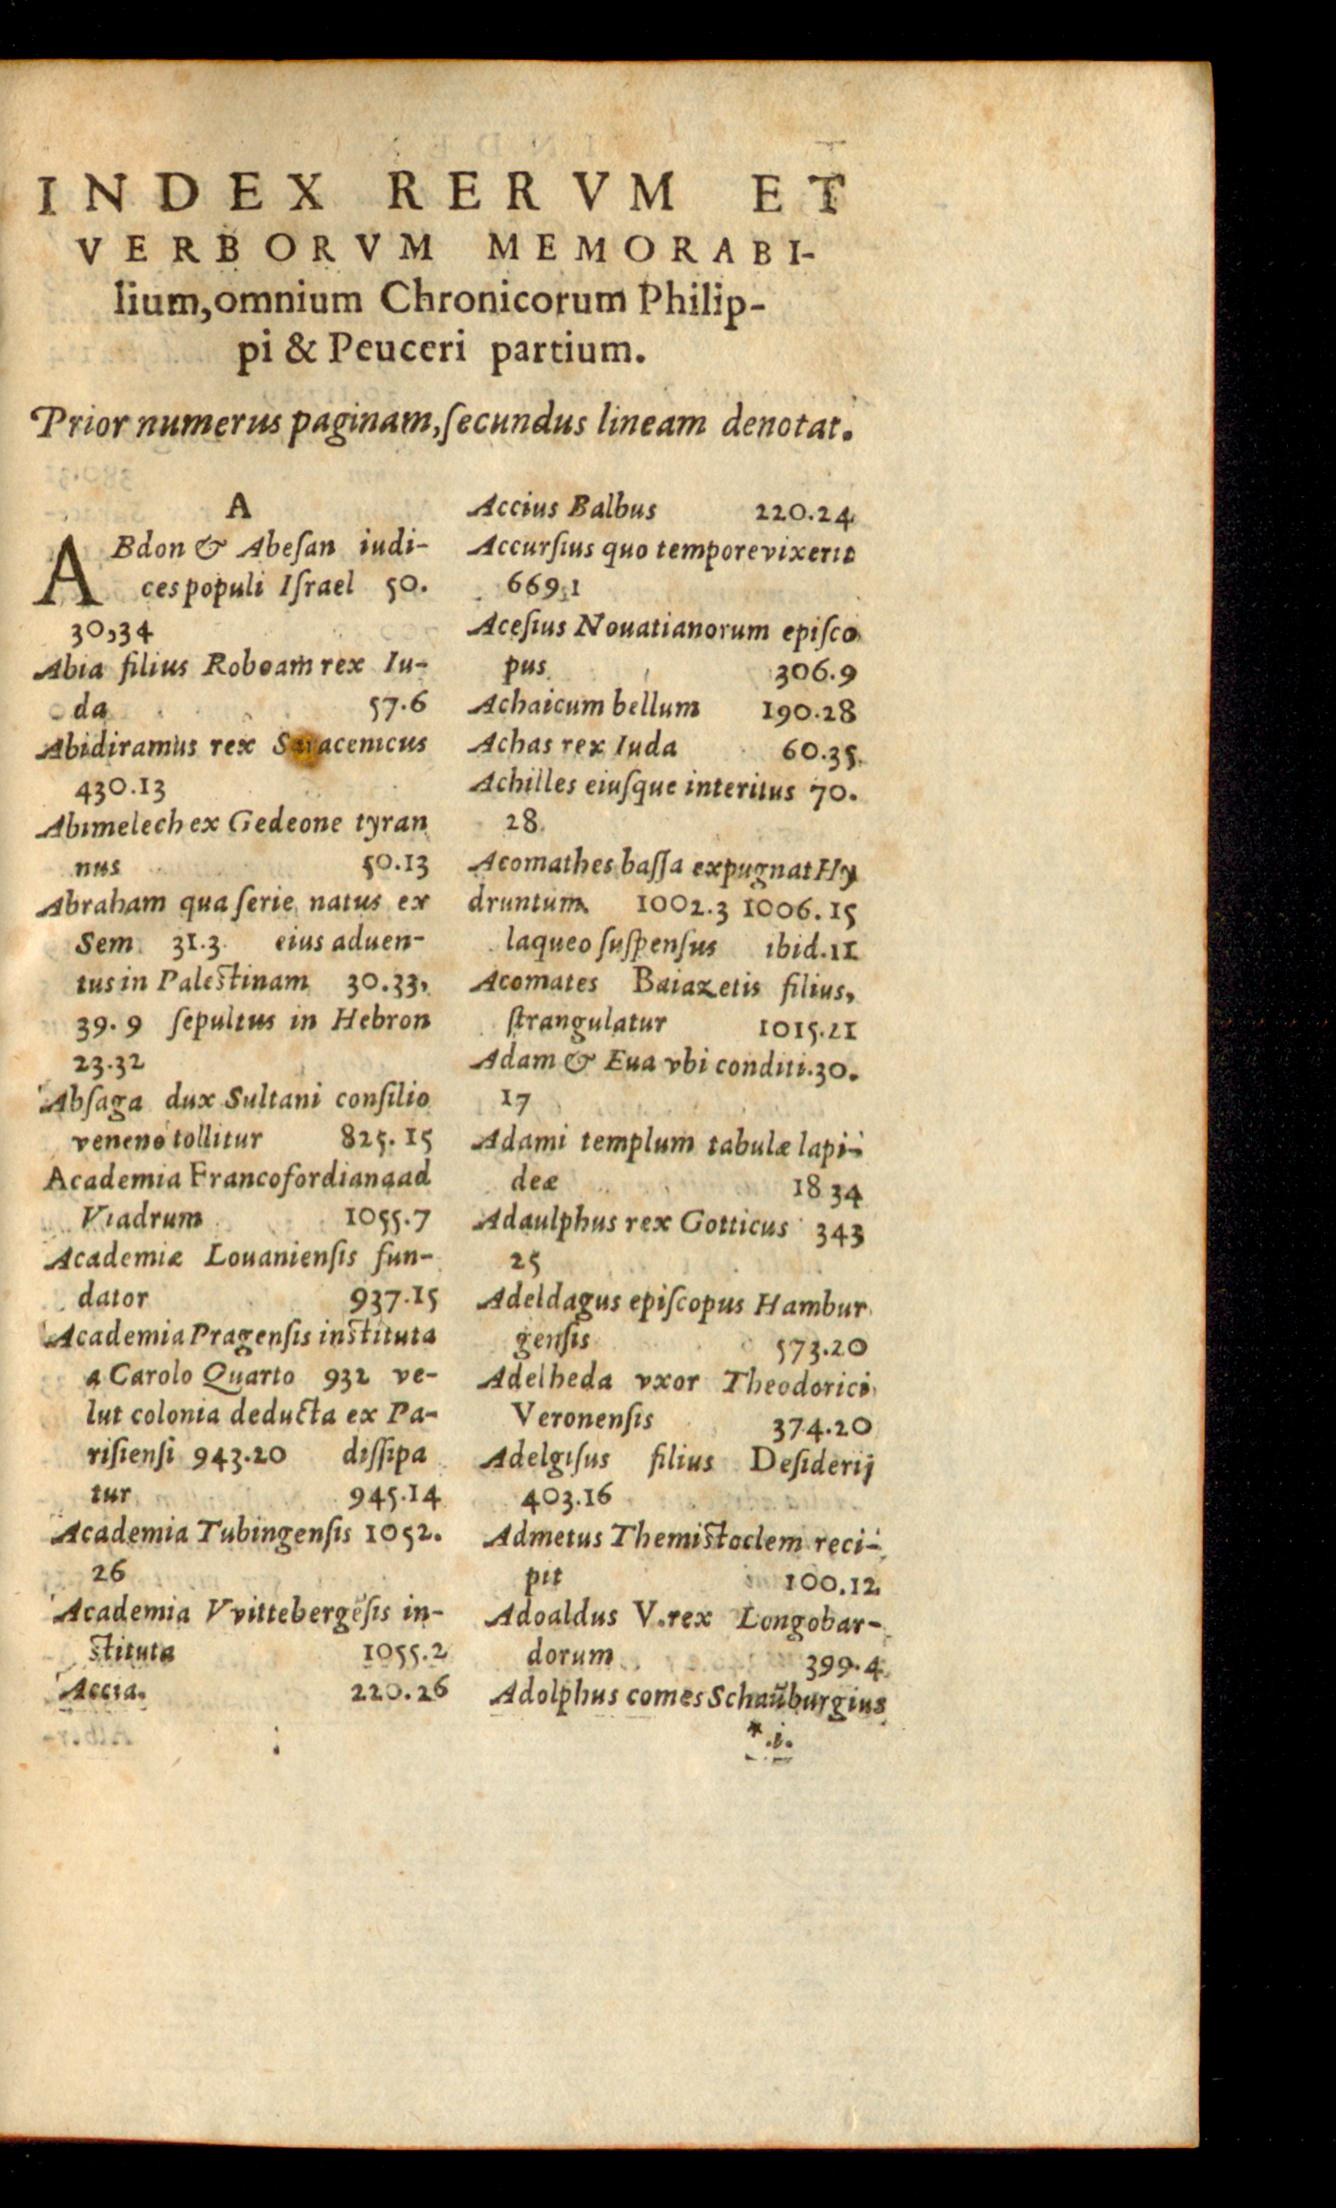 INDEX RERVM ET
VERBORVM MEMORABI-
lium,omnium Chronicorum Philip-
pi & Peuceri partium.
Prior numerus paginam,ſecundus lineam denotat.
A
ABdon & Abeſan iudi-
ces populi Iſrael 50.
30,34
Abia filius Roboam rex Iu-
da 57.6
Abidiramus rex Saracenicus
430.13
Abimelech ex Gedeone tyran
nus 50.13
Abraham qua ſerie natus ex
Sem 31.3 eius aduen-
tus in Paleſtinam 30.33,
39.9 ſepultus in Hebron
23.32
Abſaga dux Sultani conſilio
veneno tollitur 825.15
Academia Francofordiana ad
Viadrum 1055.7
Academiæ Louanienſis fun-
dator 937.15
Academia Pragenſis inſtituta
a Carolo Quarto 932 ve-
lut colonia deducta ex Pa-
riſienſi 943.20 diſſipa
tur 945.14
Academia Tubingenſis 1052.
26
Academia Vvittebergẽſis in-
ſtituta 1055.2
Accia. 220.26
Accius Balbus 220.24
Accurſius quo tempore vixerit
669.1
Aceſius Nouatianorum epiſco
pus 306.9
Achaicum bellum 190.28
Achas rex Iuda 60.35
Achilles eiuſque interitus 70.
28
Acomathes baſſa expugnat Hy
druntum 1002.3 1006.15
laqueo ſuſpenſus ibid.11
Acomates Baiazetis filius,
ſtrangulatur 1015.21
Adam & Eua vbi conditi.30.
17
Adami templum tabulæ lapi-
deæ 18 34
Adaulphus rex Gotticus 343
25
Adeldagus epiſcopus Hambur
genſis 573.20
Adelheda vxor Theodorici
Veronenſis 374.20
Adelgiſus filius Deſiderij
403.16
Admetus Themiſtoclem reci-
pit 100.12
Adoaldus V.rex Longobar-
dorum 399.4
Adolphus comes Schaũburgius
*.i.